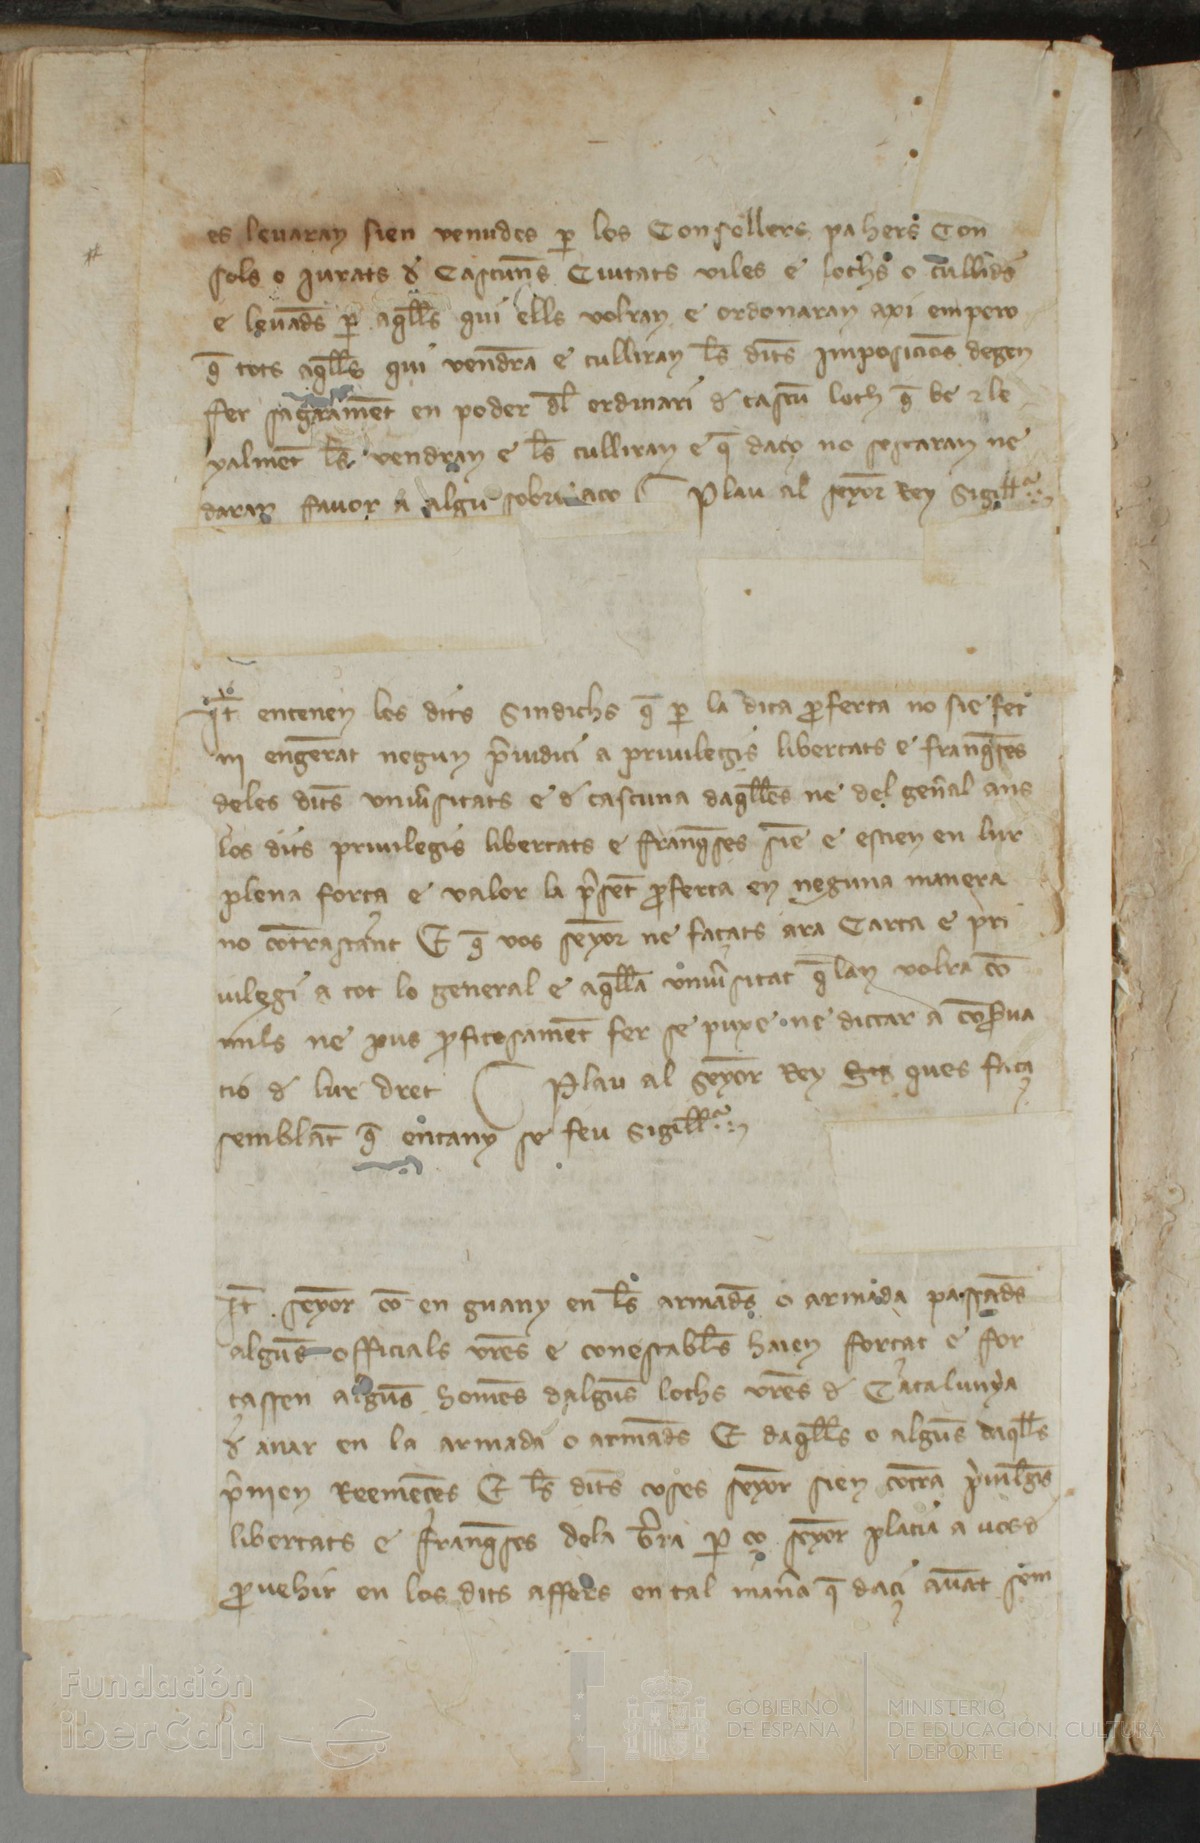 es levaran sien venudes p̄ los Consellers pahers Con
sols o jurats d̄ Cascun̄s Ciutats viles e lochs o cullids̄
e levad̄s p̄ aq̄lls qui ells volran e ordonaran axi empero
q̄ tots aq̄lls qui vendrā e culliran l̄s dit̄s imposicion̄s degen
fer sagramēt en poder dl̄ ordinari d̄ cascū loch q̄ be e le
yalmēt l̄s vendran e l̄s culliran e q̄ daço no
daran favor a algu sobre aço Plau al seyor̄ Rey Sigill̄
It̄ entenen los dits Sindichs q̄ p̄ la dita p̄ferta no sie fet
ni engen̄rat negun p̄iudici a privilegis libertats e franq̄ses
deles dit̄s univ̄sitats e d̄ cascuna daq̄lles ne del gen̄al ans
los dits privilegis libertats e franq̄ses siē e estien en lur
plena força e valor la p̄sēt p̄ferta en neguna manera
no cōtrastānt E q̄ vos seyor̄ ne façats ara Carta e pri
vilegi a tot lo general e aq̄lla univ̄sitat q̄ lan volra cō
mils ne pus p̄fitosamēt fer se puxe ne dictar a cōs̄va
cio d̄ lur dret Plau al Seyor̄ Rey ques faça
semblāt q̄ entany se feu Sigill̄
It̄ seyor̄ cō en guany en l̄s armad̄s o armada passad̄s
algūs officials vr̄es e conestabl̄s haien forçat e for
çassen algūs hom̄es dalgūs lochs vr̄es d̄ Catalunya
d̄ anar en la armada o armad̄s E daq̄lls o algūs daq̄lls
p̄nien Reemēces E l̄s dit̄s coses seyor̄ sien cōtra p̄vil̄gis
libertats e franq̄ses dela t̄ra p̄ ço seyor̄ placia a vos d̄
p̄vehir en los dits affers en tal man̄a q̄ daci avāt sem
Fundación
iberCaja
GOBIERNO
DE ESPAÑA
MINISTERIO
DE EDUCACIÓN, CULTURA
Y DEPORTE